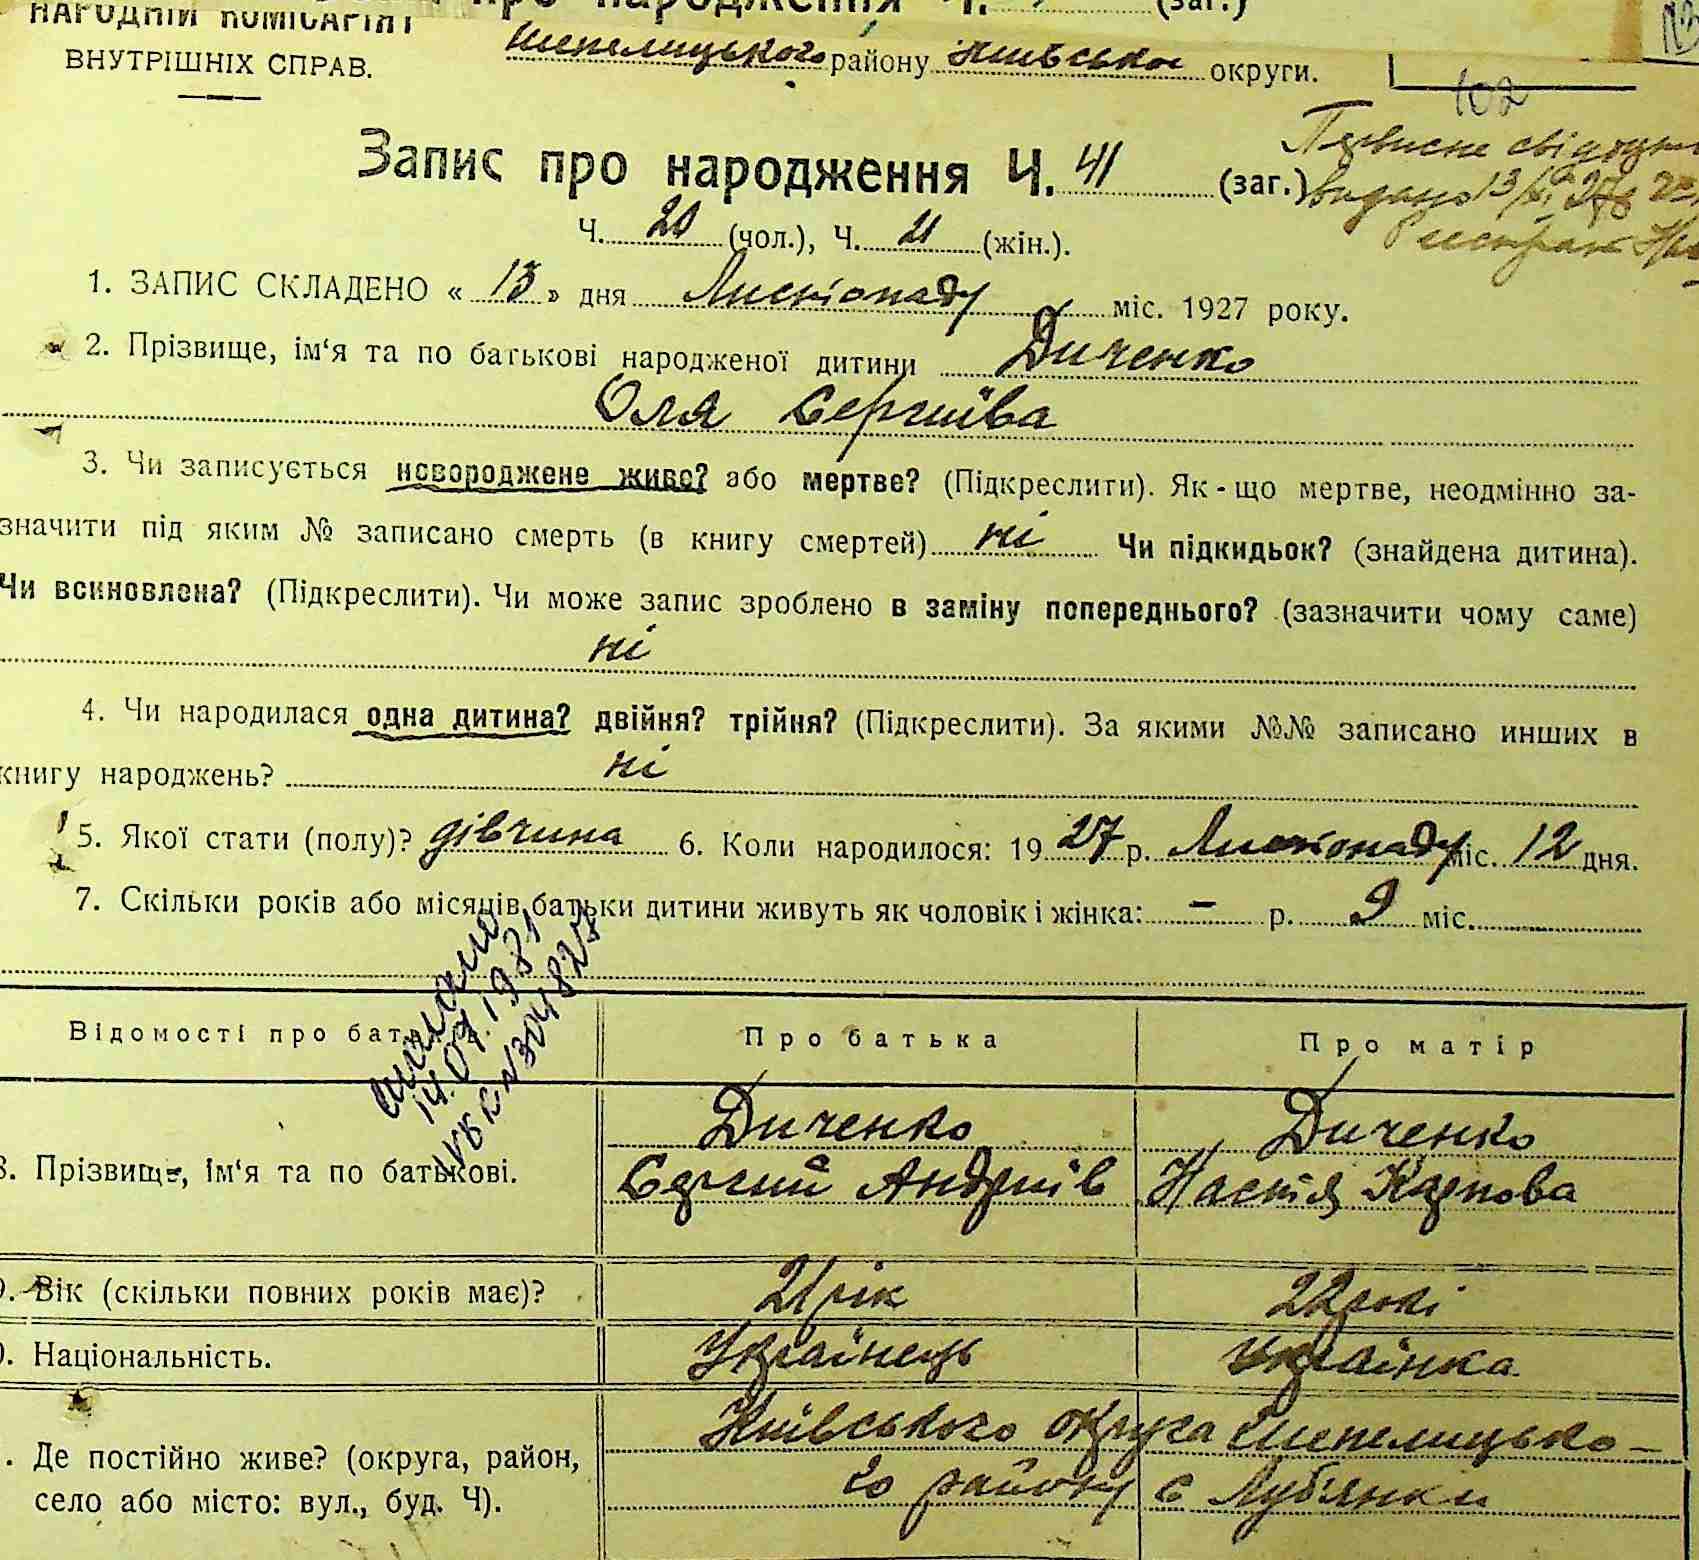 про народження Ч. (заг.)
НАРОДНІЙ КОМІСАРІЯТ
ВНУТРІШНІХ СПРАВ.
Шепелицького району Київської округи.
102
Первисне
видано 13/XI 27
Запис про народження Ч. 41 (заг.)
Ч. 20 (чол.), Ч. 21 (жін.).
1. ЗАПИС СКЛАДЕНО « 13 » дня Листопаду міс. 1927 року.
2. Прізвище, ім‘я та по батькові народженої дитини Диченко
Оля Сергиїва
3. Чи записується новороджене живе? або мертве? (Підкреслити). Як-що мертве, неодмінно за-
значити під яким № записано смерть (в книгу смертей) ні Чи підкидьок? (знайдена дитина).
Чи всиновлена? (Підкреслити). Чи може запис зроблено в заміну попереднього? (зазначити чому саме)
ні
4. Чи народилася одна дитина? двійня? трійня? (Підкреслити). За якими №№ записано инших в
книгу народжень? ні
5. Якої стати (полу)? дівчина 6. Коли народилося: 1927 р. Листопаду міс. 12 дня.
7. Скільки років або місяців батьки дитини живуть як чоловік і жінка: — р. 9 міс.
14.07.1981
Відомості про батьків Про батька Про матір
8. Прізвище, ім‘я та по батькові. Диченко Сергий Андриїв Диченко Настя Карпова
9. Вік (скільки повних років має)? 21 рік 22 рокі
Національність. Українець Українка
Де постійно живе? (округа, район, Київського округа Шепелицько-
село або місто: вул., буд. Ч). го району с Лубянки